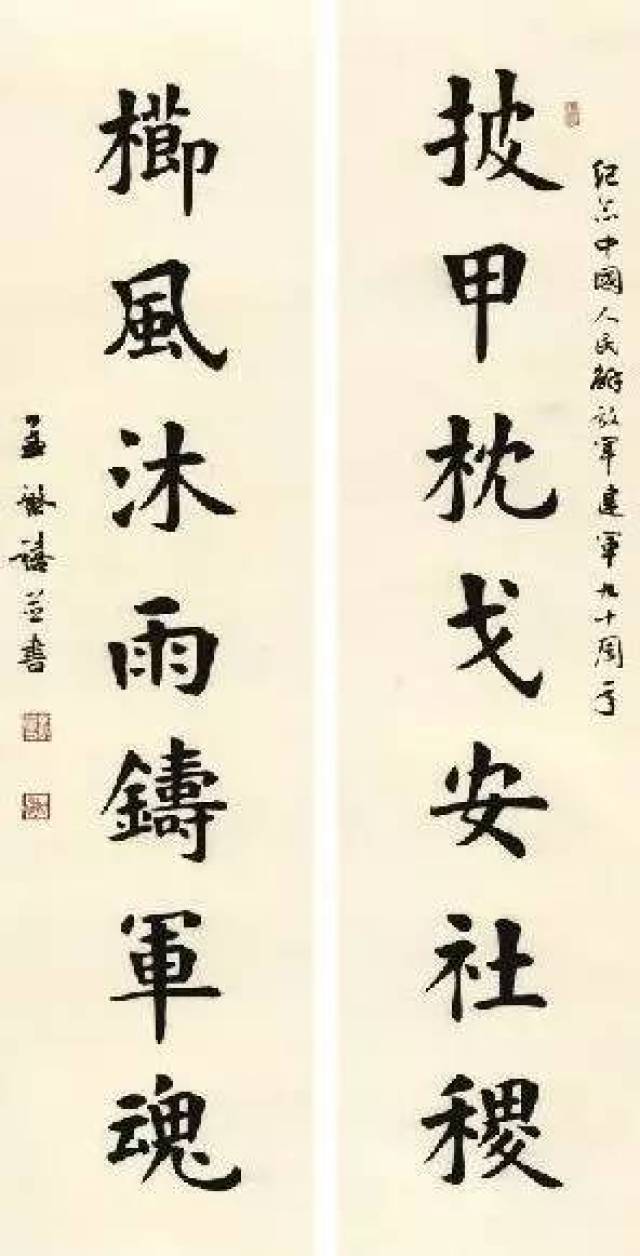 紀念中國人民解放軍建軍九十周年
披甲枕戈安社稷
櫛風沐雨鑄軍魂
並書